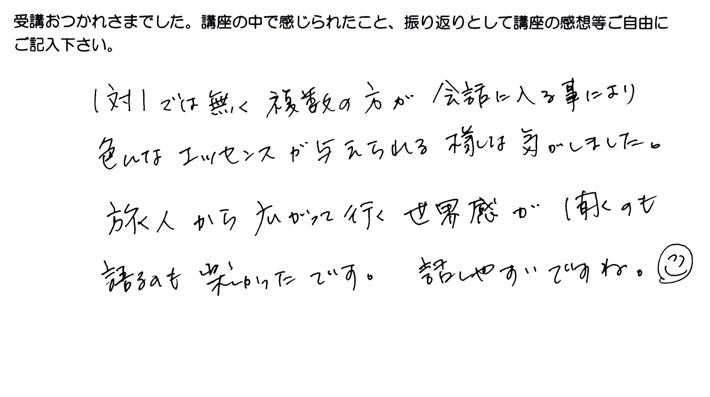 受講おつかれさまでした。講座の中で感じられたこと、振り返りとして講座の感想等ご自由に
ご記入下さい。
1対1では無く 複数の方が 会話に入る事により
色んな エッセンスが与えられる 様な 気がしました。
旅人から広がって行く 世界感が 聞くのも
語るのも 楽しかったです。 話しやすいですね。